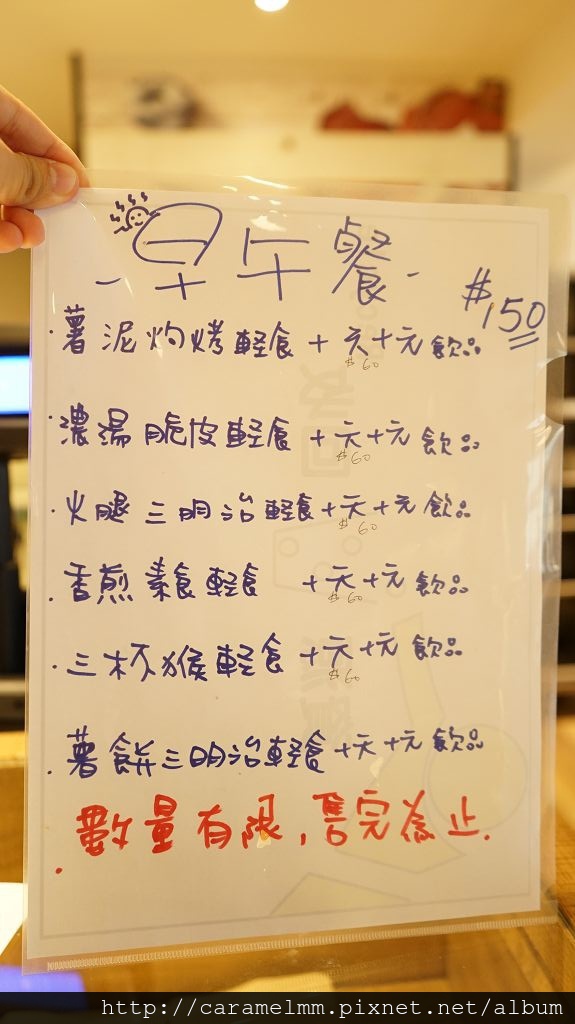 - 早午餐 -
$150
· 薯泥灼烤輕食 + 天 + 元 飲品
$60
· 濃湯脆皮輕食 + 天 + 元 飲品
$60
· 火腿三明治輕食 + 天 + 元 飲品
$60
· 香煎素食輕食 + 天 + 元 飲品
$60
· 三杯猴輕食 + 天 + 元 飲品
$60
· 薯餅三明治輕食 + 天 + 元 飲品
· 數量有限,售完為止.
http://caramelmm.pixnet.net/album